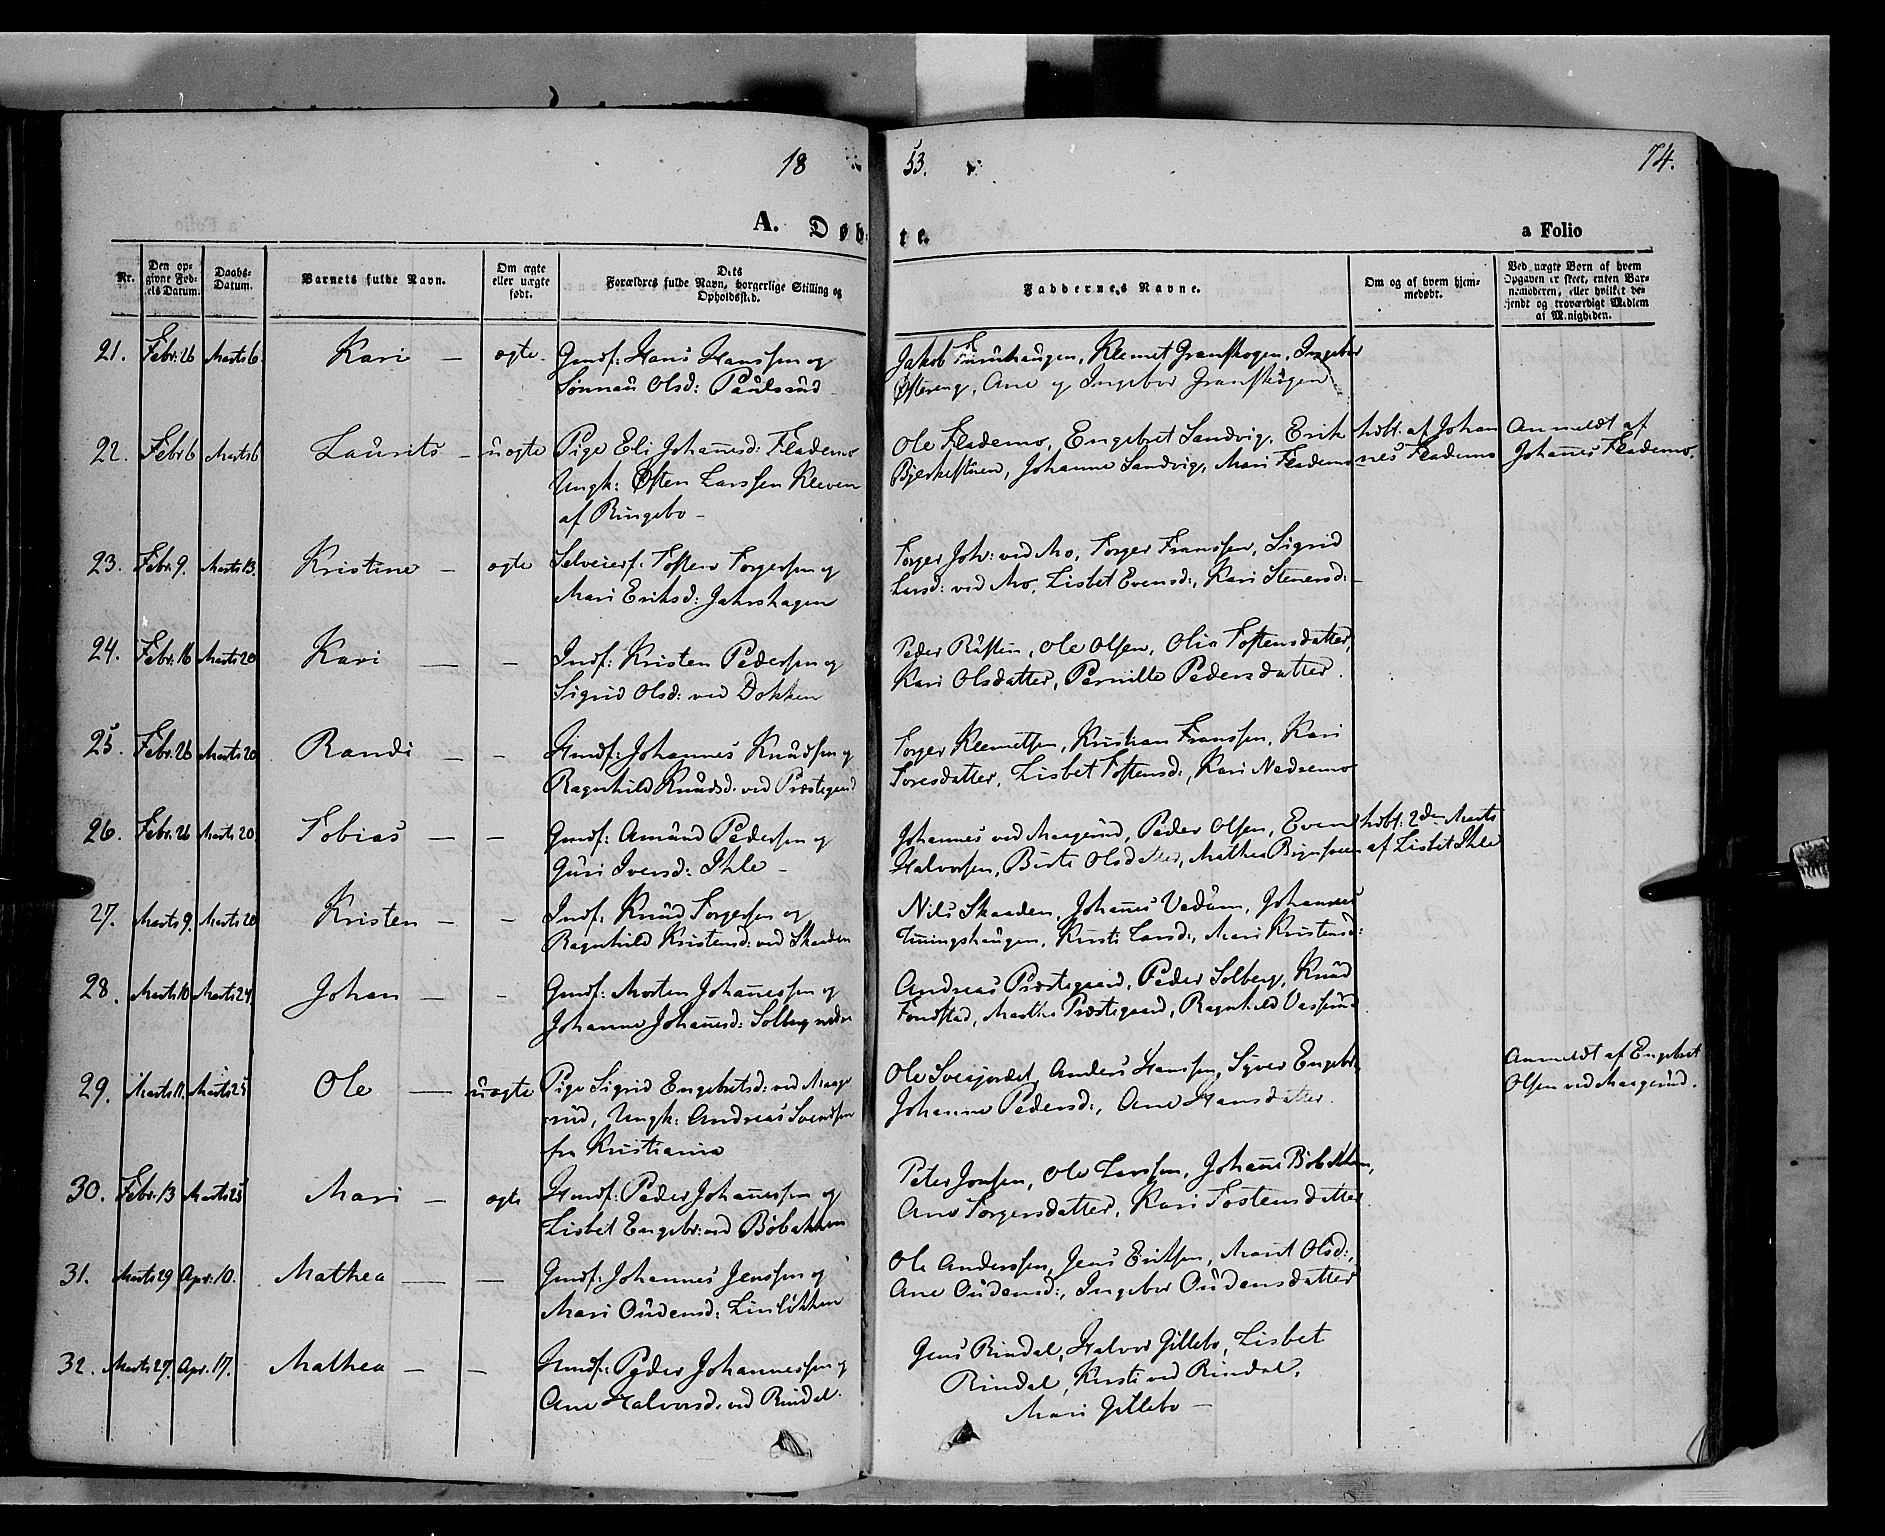 18 53. 74.
A. Døbte. a Folio
Nr.
Den opgivne Fødsels Datum.
Daabs-Datum.
Barnets fulde Navn.
Om ægte eller uægte født.
Dets Forældres fulde Navn, borgerlige Stilling og Opholdssted.
Faddernes Navne.
Om og af hvem hjemmedøbt.
Ved uægte Børn af hvem Opgaven er skeet, enten Barnemoderen, eller hvilket bekjendt og troværdigt Medlem af Menigheden.
21. Febr: 26 Marts 6. Kari — ægte. Gmdf: Hans Hanssen og Jakob Furuhaugen, Klemet Granskogen, Ingebor
Sønnau Olsd: Paulsrud Østereng, Ane og Ingebor Granskogen
22. Febr 6 Marts 6 Laurits — uægte Pige Eli Johanesd: Flademo Ole Flademo, Engebret Sandvig, Erik hdbt. af Johan Anmeldt af
Ungk: Østen Larssen Kleven Bjerkestuen, Johanne Sandvig, Mari Flademo nes Flademo Johanes Flademo.
af Ringebo —
23. Febr. 9. Marts 13. Kristine — ægte Selveierf: Tosten Torgersen og Torger Joh: ved Mo, Torger Franssen, Sigrid
Mari Eriksd: Jahrshagen Larsd: ved Mo, Lisbet Evensd:, Kari Stenersd: —
24. Febr: 16 Marts 20 Kari — — Indf: Kristen Pedersen og Peder Rusten, Ole Olsen, Olia Tostensdatter,
Sigrid Olsd: ved Dokken Kari Olsdatter, Pernille Pedersdatter.
25. Febr. 26 Marts 20 Randi — — Hmdf: Johannes Knudsen og Torger Klemetsen, Kristian Franssen, Kari
Ragnhild Knudsd. ved Præstegaard Toresdatter, Lisbet Tostensd:, Kari Nedremo
26. Febr. 26 Marts 20. Tobias — — Gmdf: Amund Pedersen og Johannes ved Maagerud, Peder Olsen, Even hdbt: 2den Marts
Guri Iversd: Ihle — Halvorsen, Birte Olsdatter, Mathea af Lisbet Ihle
27. Marts 9. Marts 20 Kristen — — Indf: Knud Torgersen og Nils Skaaden, Johanes Vadum, Johannes
Ragnhild Kristensd: ved Skaaden Tuningshaugen, Kirsti Larsd:, Mari Kristensd:
28. Marts 10 Marts 24 Johan — — Gmdf: Morten Johanessen og Andreas Præstegaard, Peder Solberg, Knud
Johanne Johanesd: Solberg nedre Fondstad, Marthe Præstegaard, Ragnhild
29. Marts 11. Marts 25 Ole — uægte Pige Sigrid Engebretsd: ved Maage- Ole Sveejordet, Anders Hanssen, Syver Engebr: Anmeldt af Engebret
rud, Ungk: Andreas Svendsen Johanne Pedersd:, Ane Hansdatter. Olsen ved Maagerud.
fra Kristiania
30. Febr. 13 Marts 25 Mari — ægte Hmdf: Peder Johanessen og Peter Jonsen, Ole Larssen, Johane Bøbakken,
Lisbet Engebr: ved Bøbakken Ane Torgersdatter, Kari Tostensdatter
31. Marts 29 Apr: 10. Mathea — — Gmdf: Johannes Jenssen og Ole Anderssen, Jens Eriksen, Marit Olsd:,
Mari Oudensd: Linløkken Ane Oudensd:, Ingebor Oudensdatter
32. Marts 27. Apr. 17. Mathea — — Hmdf: Peder Johannessen og Jens Rindal, Halvor Gillebo, Lisbet
Ane Halvorsd. ved Rindal. Rindal, Kirsti ved Rindal,
Mari Gillebo —